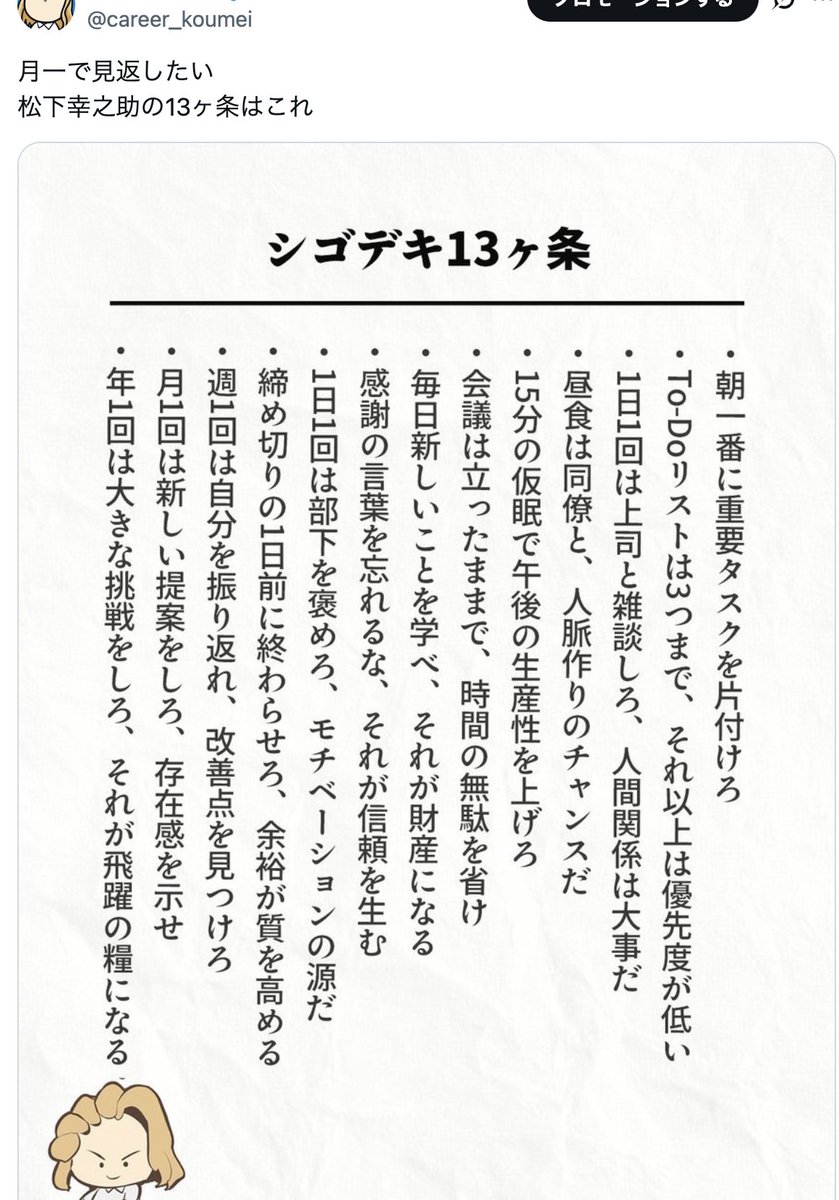 @career_koumei
プロモーションする
月一で見返したい
松下幸之助の13ヶ条はこれ
シゴデキ13ヶ条
・朝一番に重要タスクを片付けろ
・To-Doリストは3つまで、それ以上は優先度が低い
・1日1回は上司と雑談しろ、人間関係は大事だ
・昼食は同僚と、人脈作りのチャンスだ
・15分の仮眠で午後の生産性を上げろ
・会議は立ったままで、時間の無駄を省け
・毎日新しいことを学べ、それが財産になる
・感謝の言葉を忘れるな、それが信頼を生む
・1日1回は部下を褒めろ、モチベーションの源だ
・締め切りの1日前に終わらせろ、余裕が質を高める
・週1回は自分を振り返れ、改善点を見つけろ
・月1回は新しい提案をしろ、存在感を示せ
・年1回は大きな挑戦をしろ、それが飛躍の糧になる